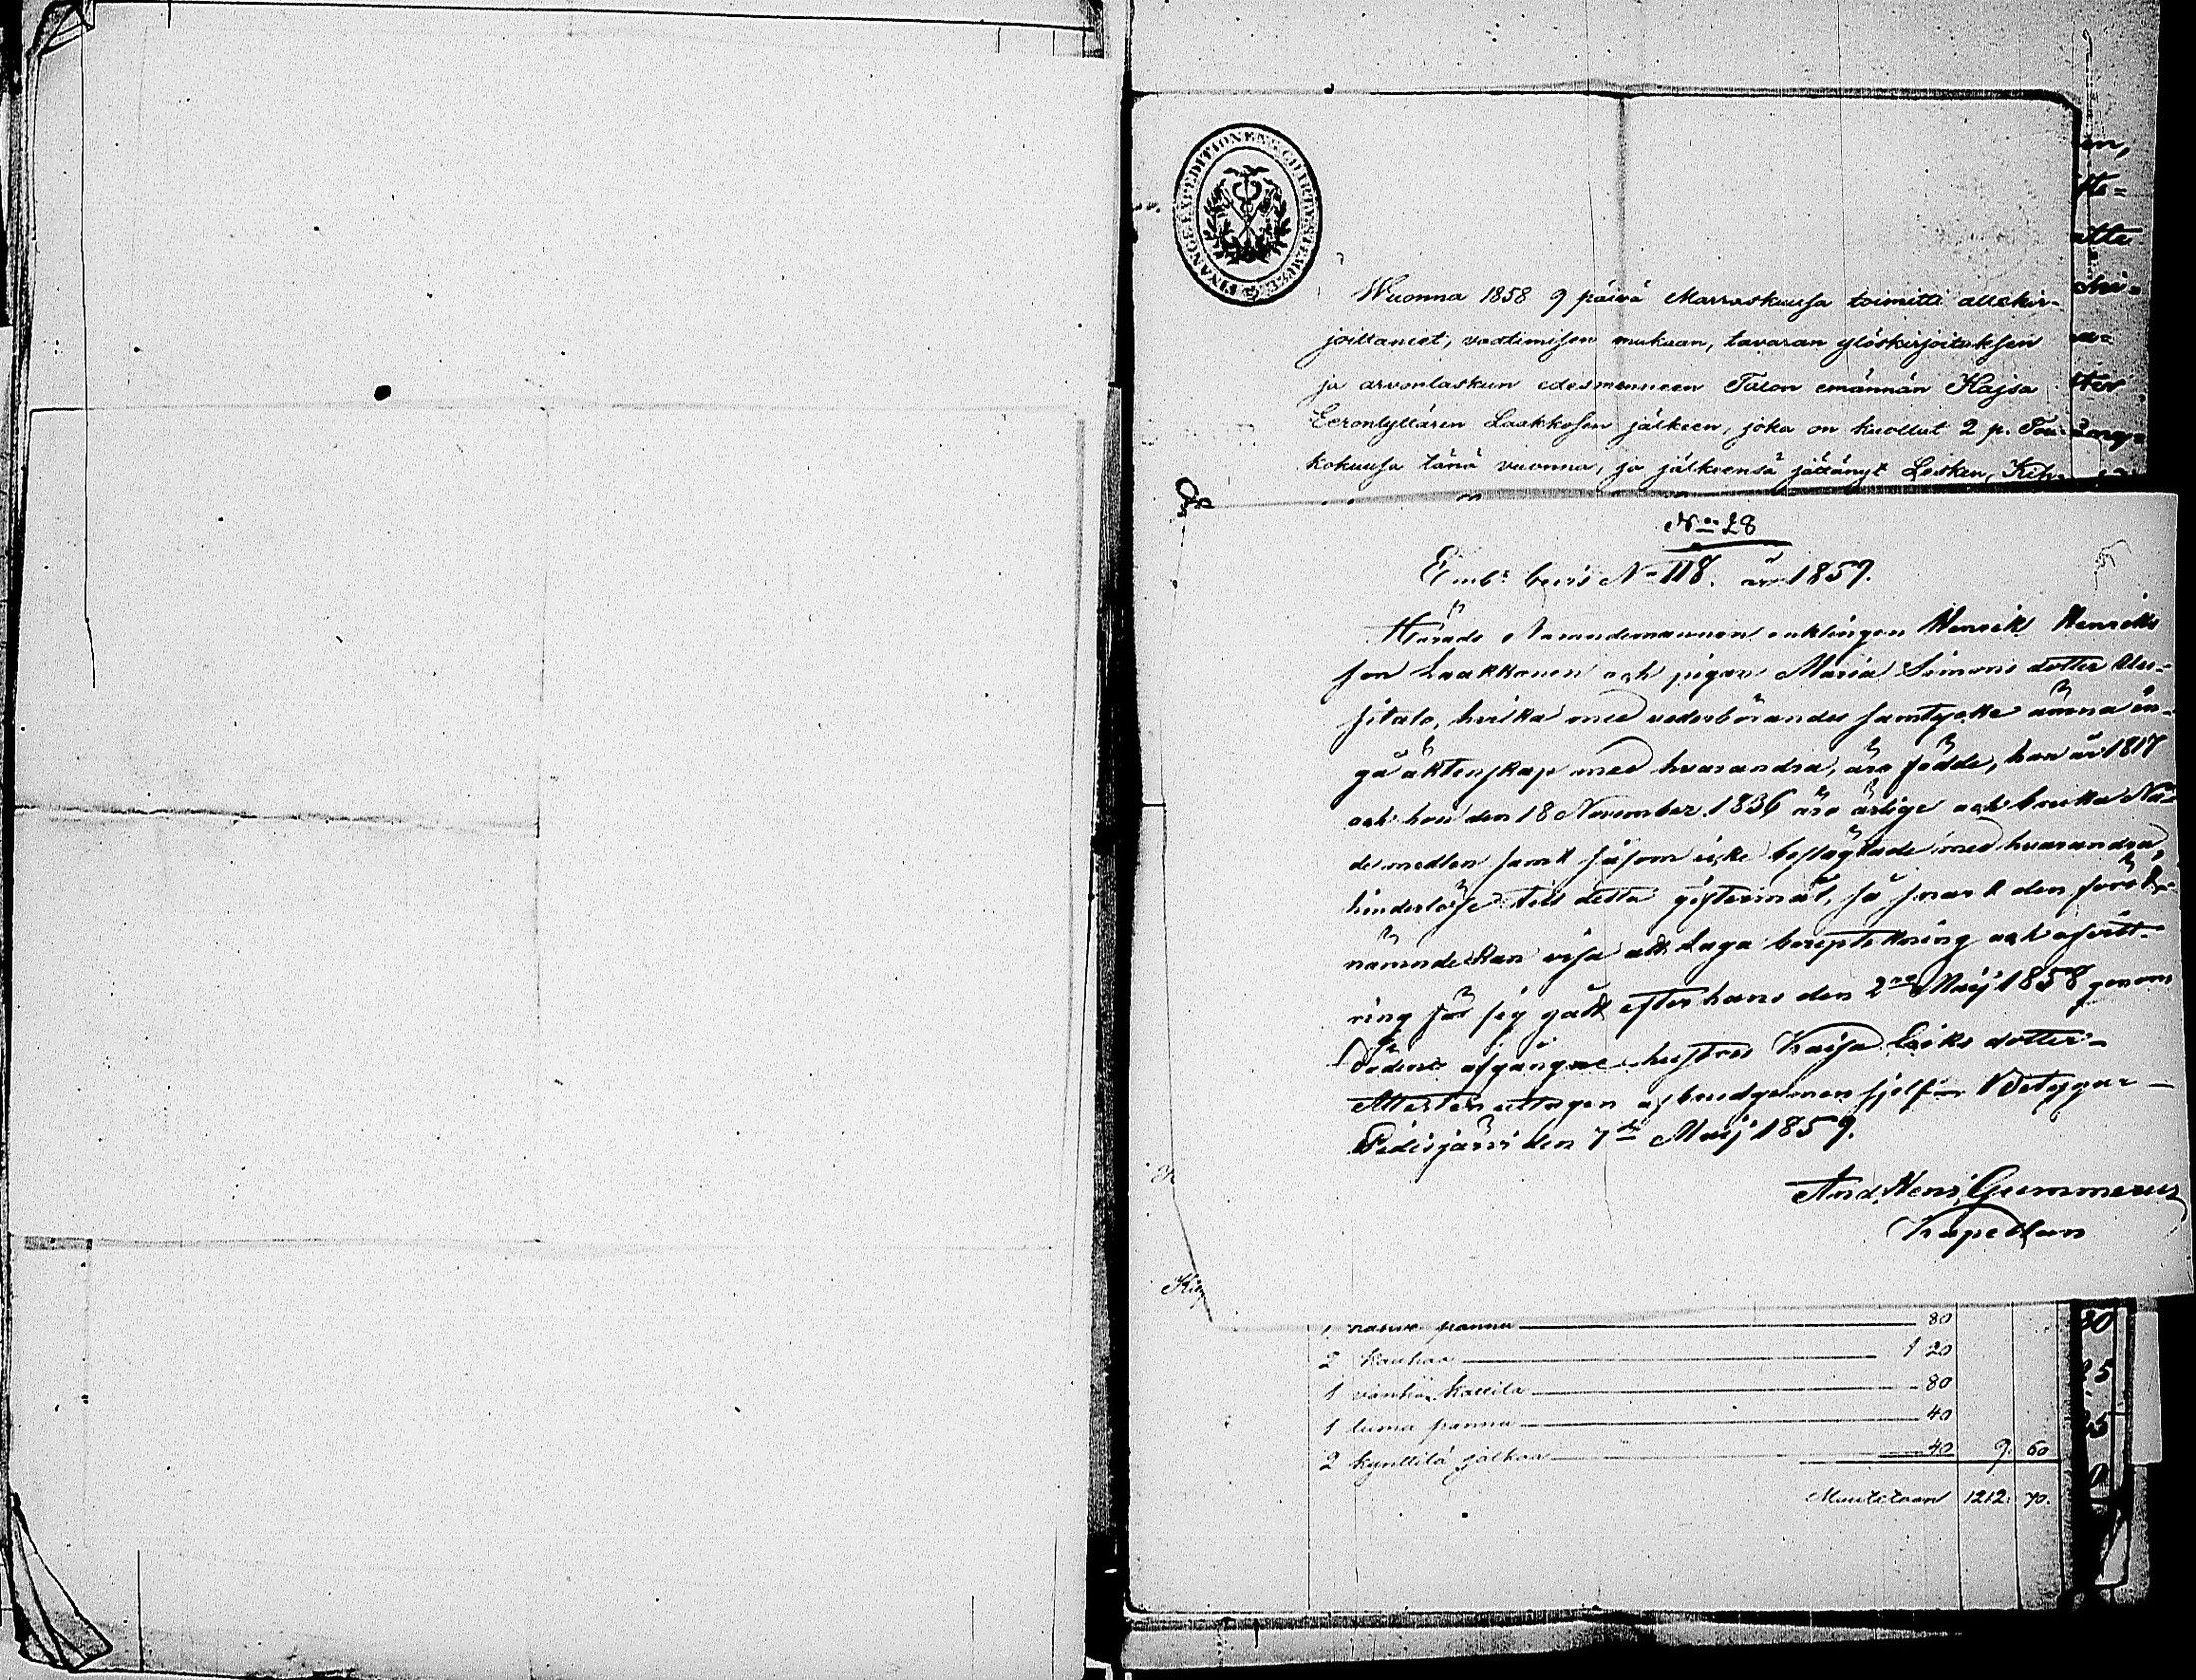 FINANCE EXPEDITIONENS CHARTÆ STEMPEL
Wuonna 1858 9 päivä Marraskuusa toimitti allekir-
joittaneet, vaatimisen mukaan, tavaran ylöskirjoituksen
ja arvonlaskun edesmenneen Talon emännän Kajsa
Eerontyttären Laakkosen jälkeen, joka on kuollut 2 p. Tou-
kokuusa tänä vuonna, ja jälkeensä jättänyt Lesken, Kih-
No 28
bevis No 118. år 1857.
Härads Nämndemannen enklingen Henrik Henriks
son Laakkonen och pigan Maria Simons dotter Uu-
sitalo, hvilka med vederbörandes samtycke ämna in-
gå äktenskap med hvarandra, äro födde, han år 1817
och hon den 18 November 1836 äro ärlige och bruka Nå-
demedlen samt såsom icke beslägtade med hvarandra,
hinderlöse till detta giftermål, så snart den förstt-
nämnde kan visa att Laga bouptekning och afvitt-
ring för sig gått efter hans den 2ne Maij 1858 genom
döden afgångne hustru Kaisa Eriks dotter.
Attesten uttagen af brudgumen sjelf. Betygar
Pidisjärvi den 7de Maij 1859.
And. Henr. Gummerus
Kapellan
1 pannu 80
2 kauhaa 1 20
1 vanha kattila 80
1 pannu 40
2 kynttilä jalkaa 40 9. 60
Muutetaan 1212. 70.